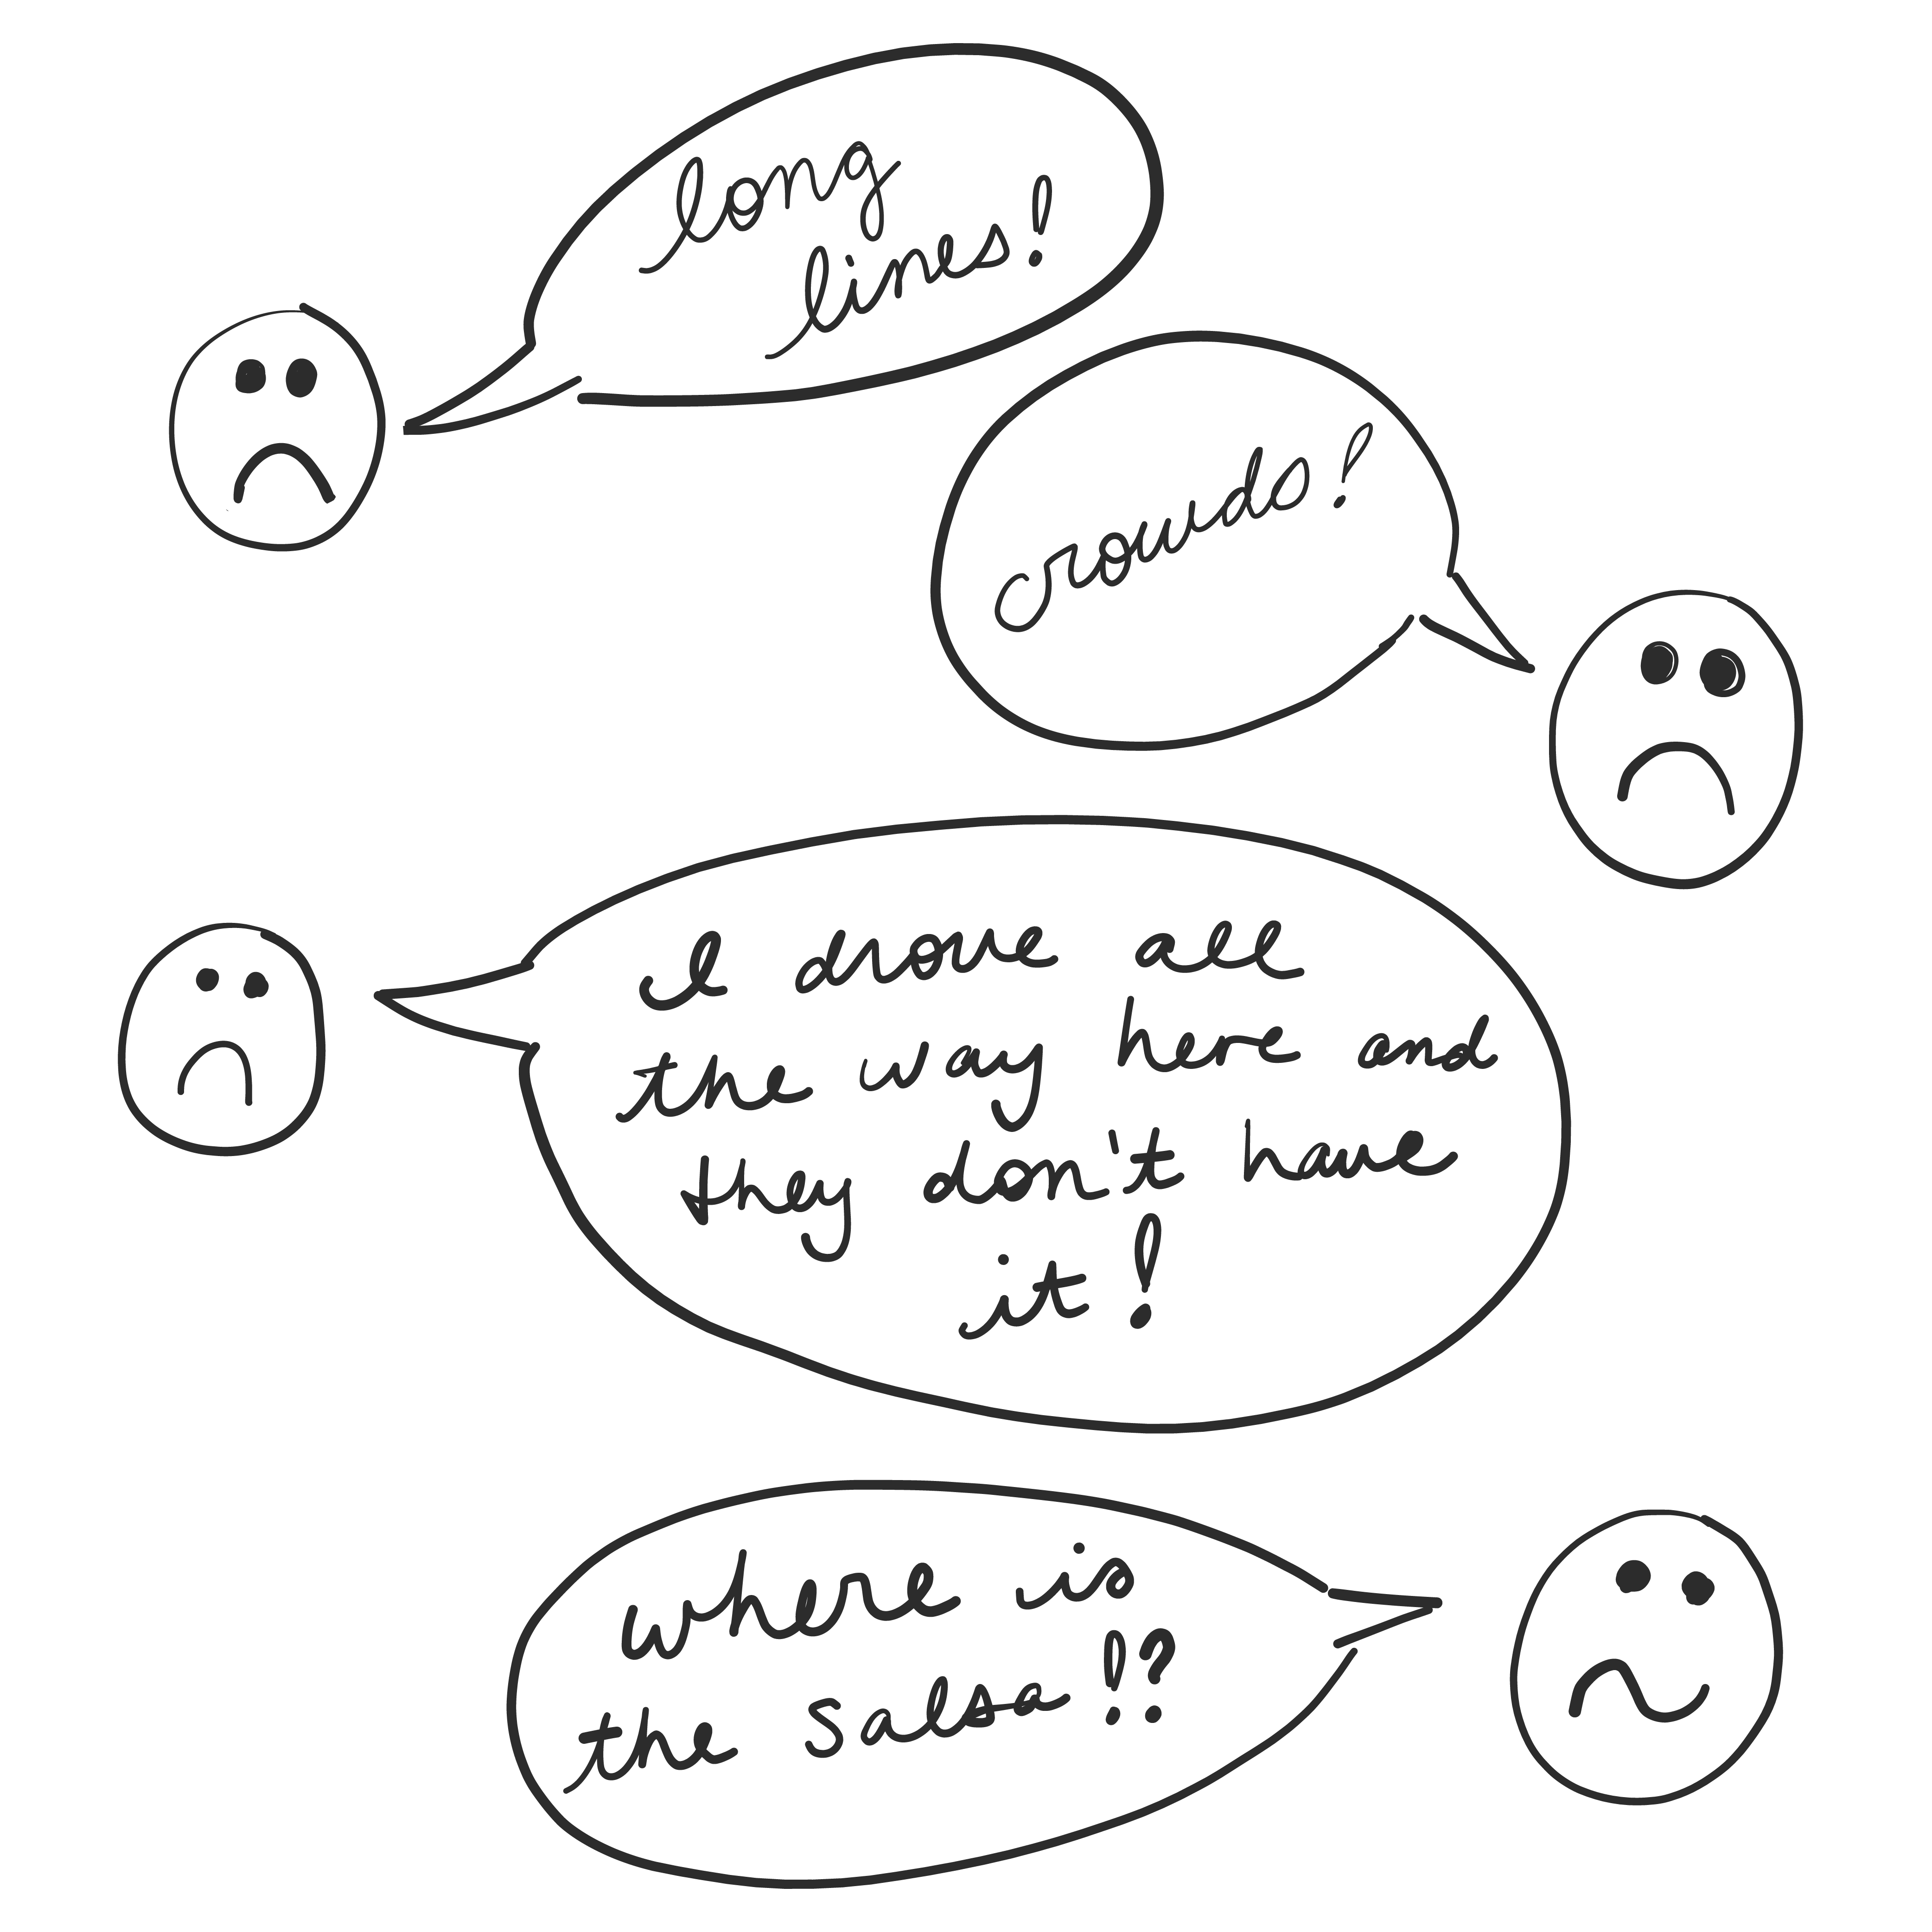 long
lines!
crowds!
I drove all
the way here and
they don't have
it!
where is
the salsa!?